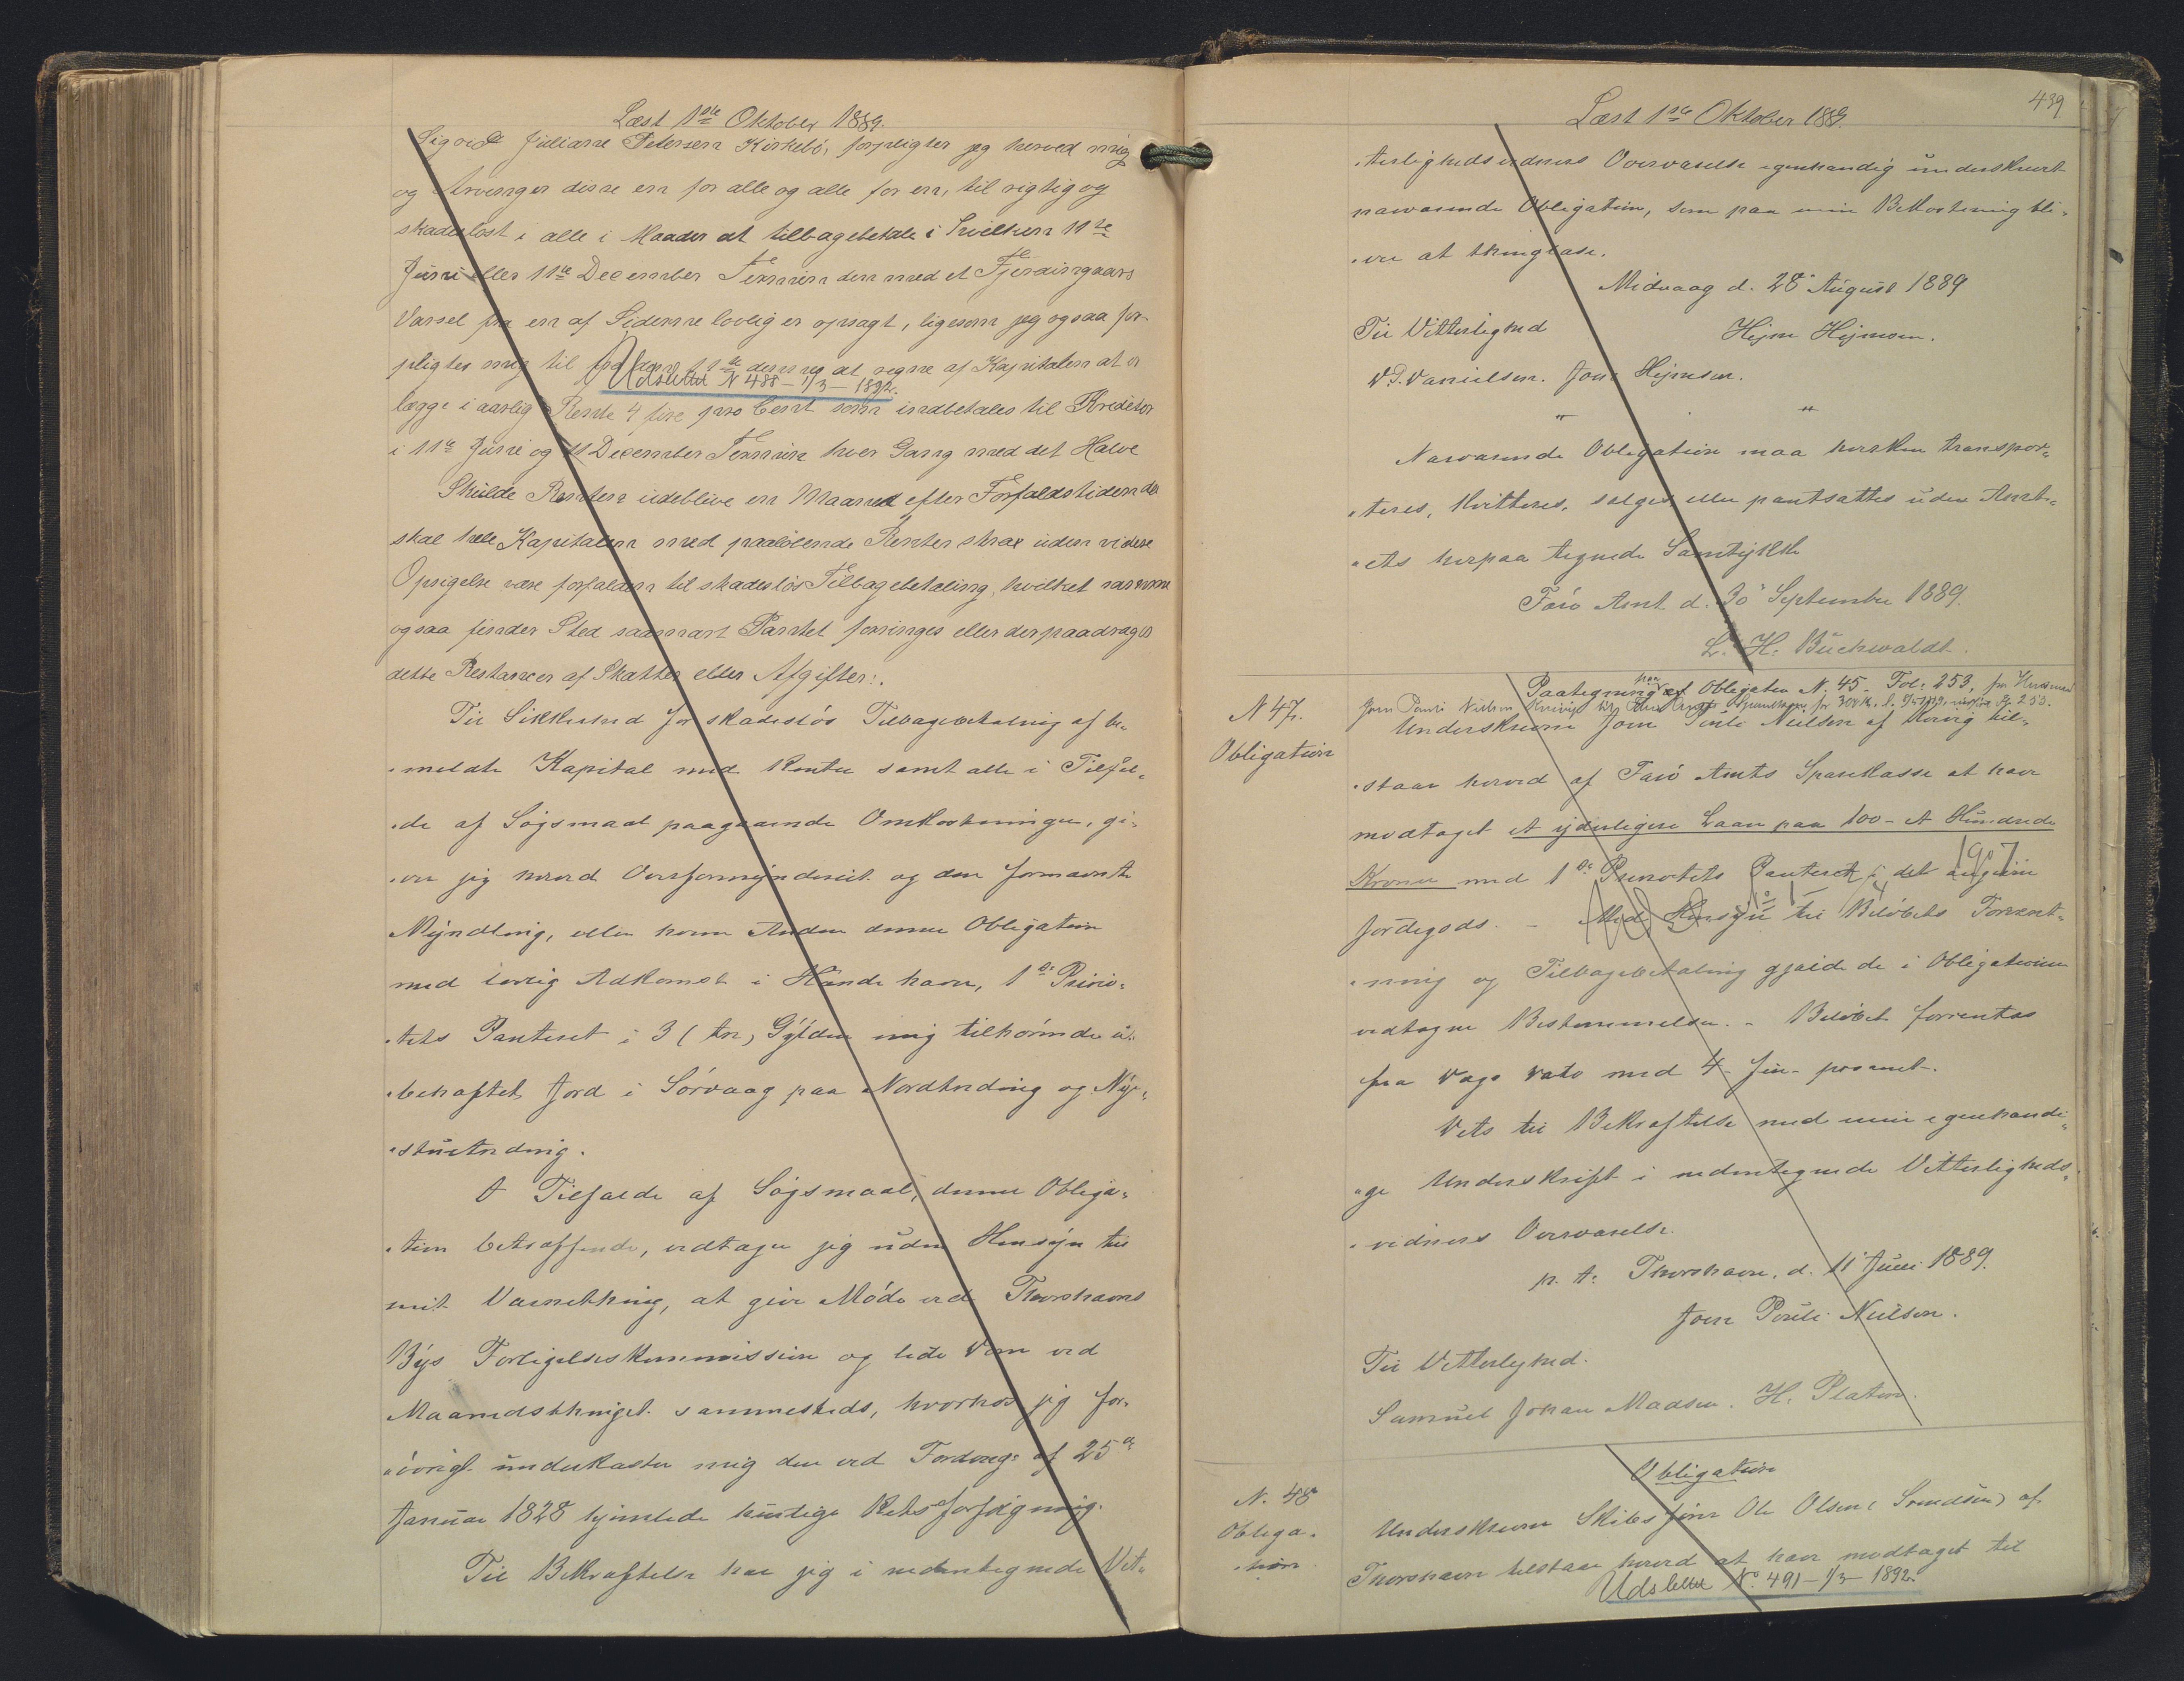 Læst 1ste Oktober 1889.
Sigvard Juliane Petersen Kirkebö, forpligter jeg herved mig
og Arvinger disse en for alle og alle for en, til rigtig og
skadeslöst i alle i Maader at tilbagebetale i hvilken 11te
Juni eller 11te December Termin den med et Fjerdingaars
Varsel fra en af Siderne lovlig er opsagt, ligesom jeg ogsaa for-
pligter mig til fra den 11te dennes at regne af Kapitalen at er
Udslettet N 488 - 1/3 - 1892.
lægge i aarlig Rente 4 fire pro Cent som indbetales til Kreditor
i 11te Juni og 11 December Termin hver Gang med det Halve
Skulde Renten udeblive en Maaned efter Forfaldstiden da
skal hele Kapitalen med paalöbende Renter strax uden videre
Opsigelse være forfalden til skadeslös Tilbagebetaling, hvilket samme
ogsaa finder Sted saafremt Pantet forringes eller der paadrages
dette Restancer af Skatter eller Afgifter.
Til Sikkerhed for skadeslös Tilbagebetaling af be-
meldte Kapital med Renter samt alle i Tilfæl-
de af Sögsmaal paagaaende Omkostninger, gi-
ver jeg herved Overformynderiet og den formævnte
Myndling, eller hvem Anden denne Obligation
med lovlig Adkomst i Hænde haver, 1ste Priori-
tets Panteret i 3 (tre) Gylden mig tilhörende u-
behæftet Jord i Sörvaag paa Nordtreding og Nyr-
stuetreding.
I Tilfælde af Sögsmaal, denne Obliga-
tion betræffende, vedtager jeg uden Hensyn til
mit Værnething, at give Möde ved Thorshavns
Bys Forligelseskommission og lide Dom ved
Maanedsthinget sammesteds, hvorhos jeg for-
övrigt underkaster mig den ved Fordng: af 25de
Januar 1828 hjemlede hurtige Retsforfölgning.
Til Bekræftelse har jeg i nedentegnede Vit-
Læst 1ste Oktober 1889.
439
terlighedsvidners Overværelse egenhændig underskrevet
nærværende Obligation, som paa min Bekostning bli-
ver at thinglæse.
Midvaag d. 28 August 1889
Til Vitterlighed
Hejne Hejnesen.
D. P. Danielsen. Joen Hejnesen.
" "
Nærværende Obligation maa hverken transpor-
teres, kvitteres, sælges eller pantsættes uden Amt-
ets herpaa tegnede Samtykke
Færö Amt d. 30 September 1889.
L. H. Buchwaldt.
N 47.
Obligation
Paategning paa Obligation N. 45 - Fol: 253, fra Husmand
Joen Pouli Nielsen
Underskrevne Joen Pouli Nielsen af Kvivig til-
staar herved af Færö Amts Sparekasse at have
modtaget et yderligere Laan paa 100 - et Hundrede
Kroner med 1ste Prioritets Panteret i det angivne
1907
Jordegods. - Med Hensyn til Belöbets Forrent-
ning og Tilbagebetaling gjælde de i Obligationen
vedtagne Bestemmelser. - Belöbet forrentes
fra Dags Dato med 4 - fire - procent.
Dets til Bekræftelse med min egenhændi-
ge Underskrift i nedentegnede Vitterligheds-
vidners Overværelse.
p. t. Thorshavn, d. 11 Juni 1889.
Joen Pouli Nielsen.
Til Vitterlighed.
Samuel Johan Madsen. H. Platen.
N. 48
Obliga-
tion
Obligation
Underskrevne Skibsförer Ole Olsen (Svendsen) af
Thorshavn tilstaar herved at have modtaget til
Udslettet No. 491 - 1/3 - 1892.